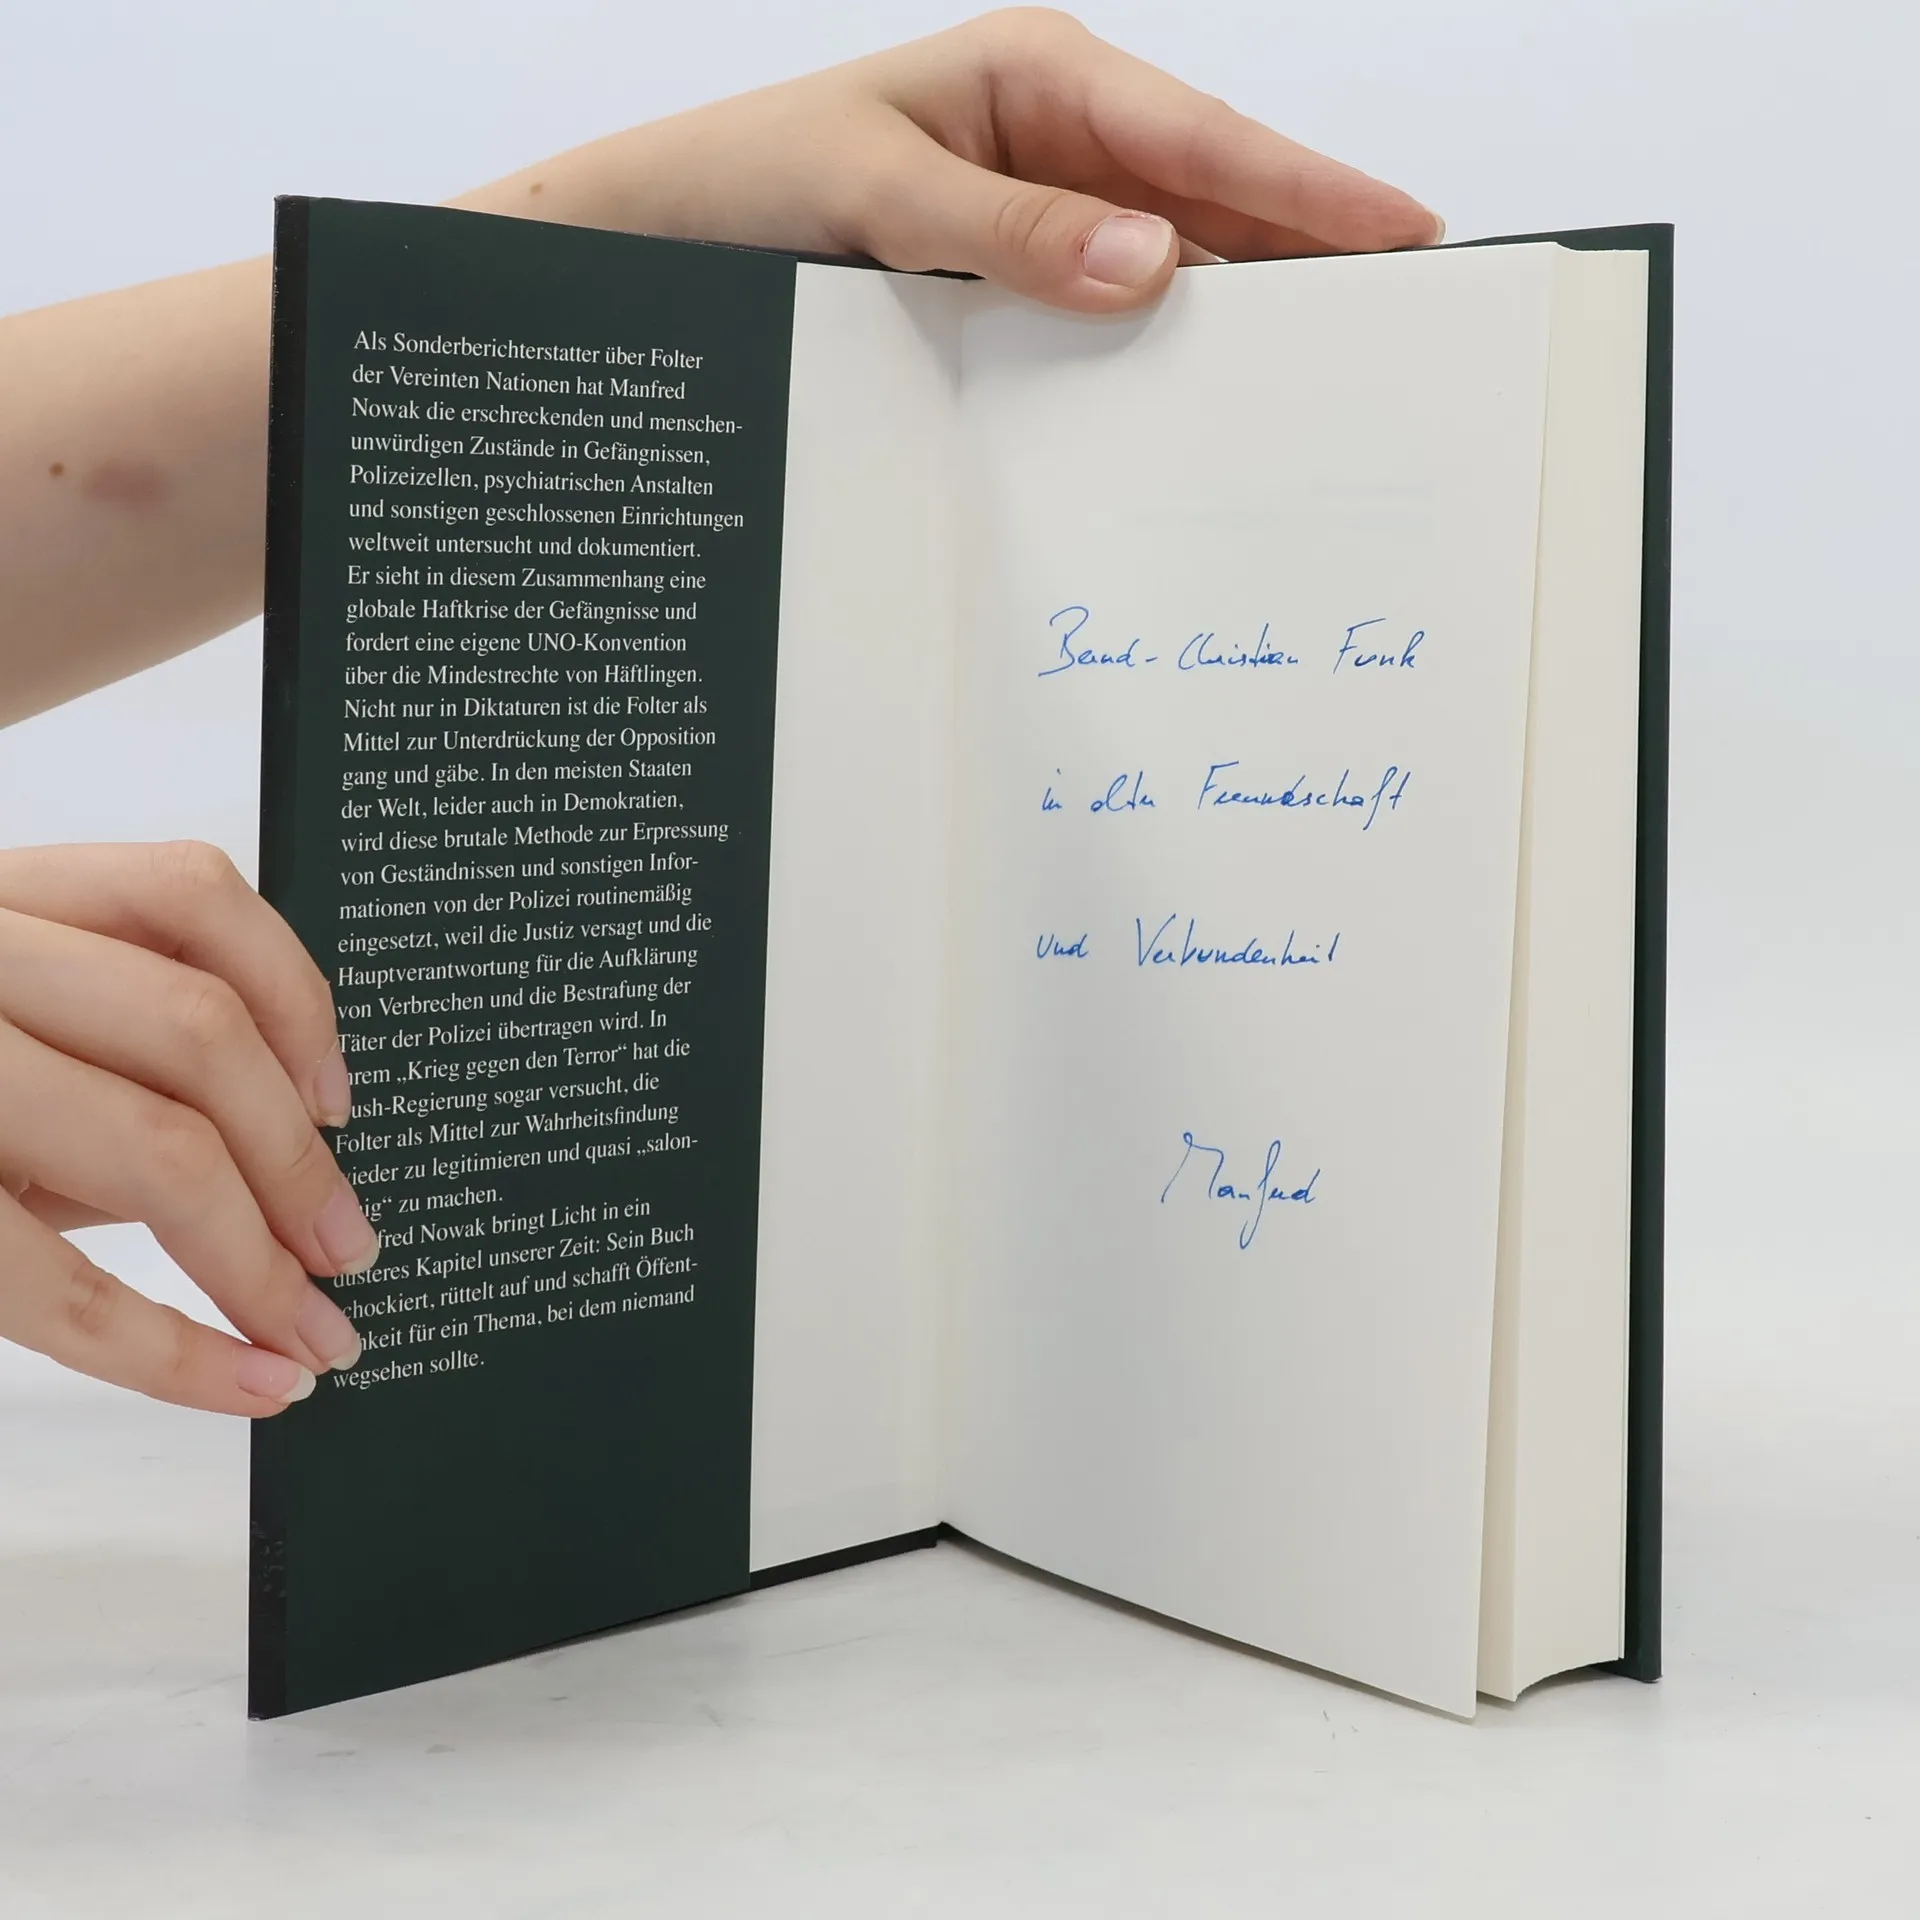 Als Sonderberichterstatter über Folter
der Vereinten Nationen hat Manfred
Nowak die erschreckenden und menschen-
unwürdigen Zustände in Gefängnissen,
Polizeizellen, psychiatrischen Anstalten
und sonstigen geschlossenen Einrichtungen
weltweit untersucht und dokumentiert.
Er sieht in diesem Zusammenhang eine
globale Haftkrise der Gefängnisse und
fordert eine eigene UNO-Konvention
über die Mindestrechte von Häftlingen.
Nicht nur in Diktaturen ist die Folter als
Mittel zur Unterdrückung der Opposition
gang und gäbe. In den meisten Staaten
der Welt, leider auch in Demokratien,
wird diese brutale Methode zur Erpressung
von Geständnissen und sonstigen Infor-
mationen von der Polizei routinemäßig
eingesetzt, weil die Justiz versagt und die
Hauptverantwortung für die Aufklärung
von Verbrechen und die Bestrafung der
Täter der Polizei übertragen wird. In
hrem „Krieg gegen den Terror“ hat die
ush-Regierung sogar versucht, die
Folter als Mittel zur Wahrheitsfindung
ieder zu legitimieren und quasi „salon-
ig“ zu machen.
fred Nowak bringt Licht in ein
düsteres Kapitel unserer Zeit: Sein Buch
chockiert, rüttelt auf und schafft Öffent-
hkeit für ein Thema, bei dem niemand
wegsehen sollte.
Bernd-Christian Funk
in alter Freundschaft
und Verbundenheit
Manfred